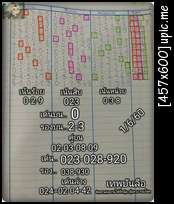 เน้นร้อย เน้นสิบ เน้นหน่วย
0-2-9 023 0-3-8
เด่นบน.. 0
รองบน.. 2-3
1/6/60
02-03-08-09
เด่น.. 023-028-920
รอง.. 038-930
เด่นล่าง
024-02-04-42
[457x600]upic.me